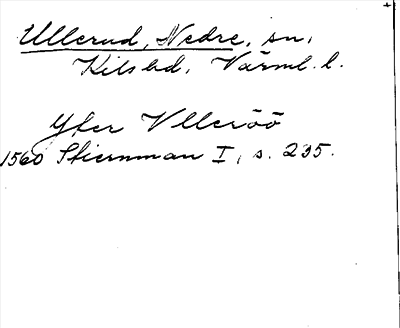 Ullerud, Nedre, sn,
Kils hd, Värml. l.
Yfer Vlleröö
1560 Stiernman I, s. 235.